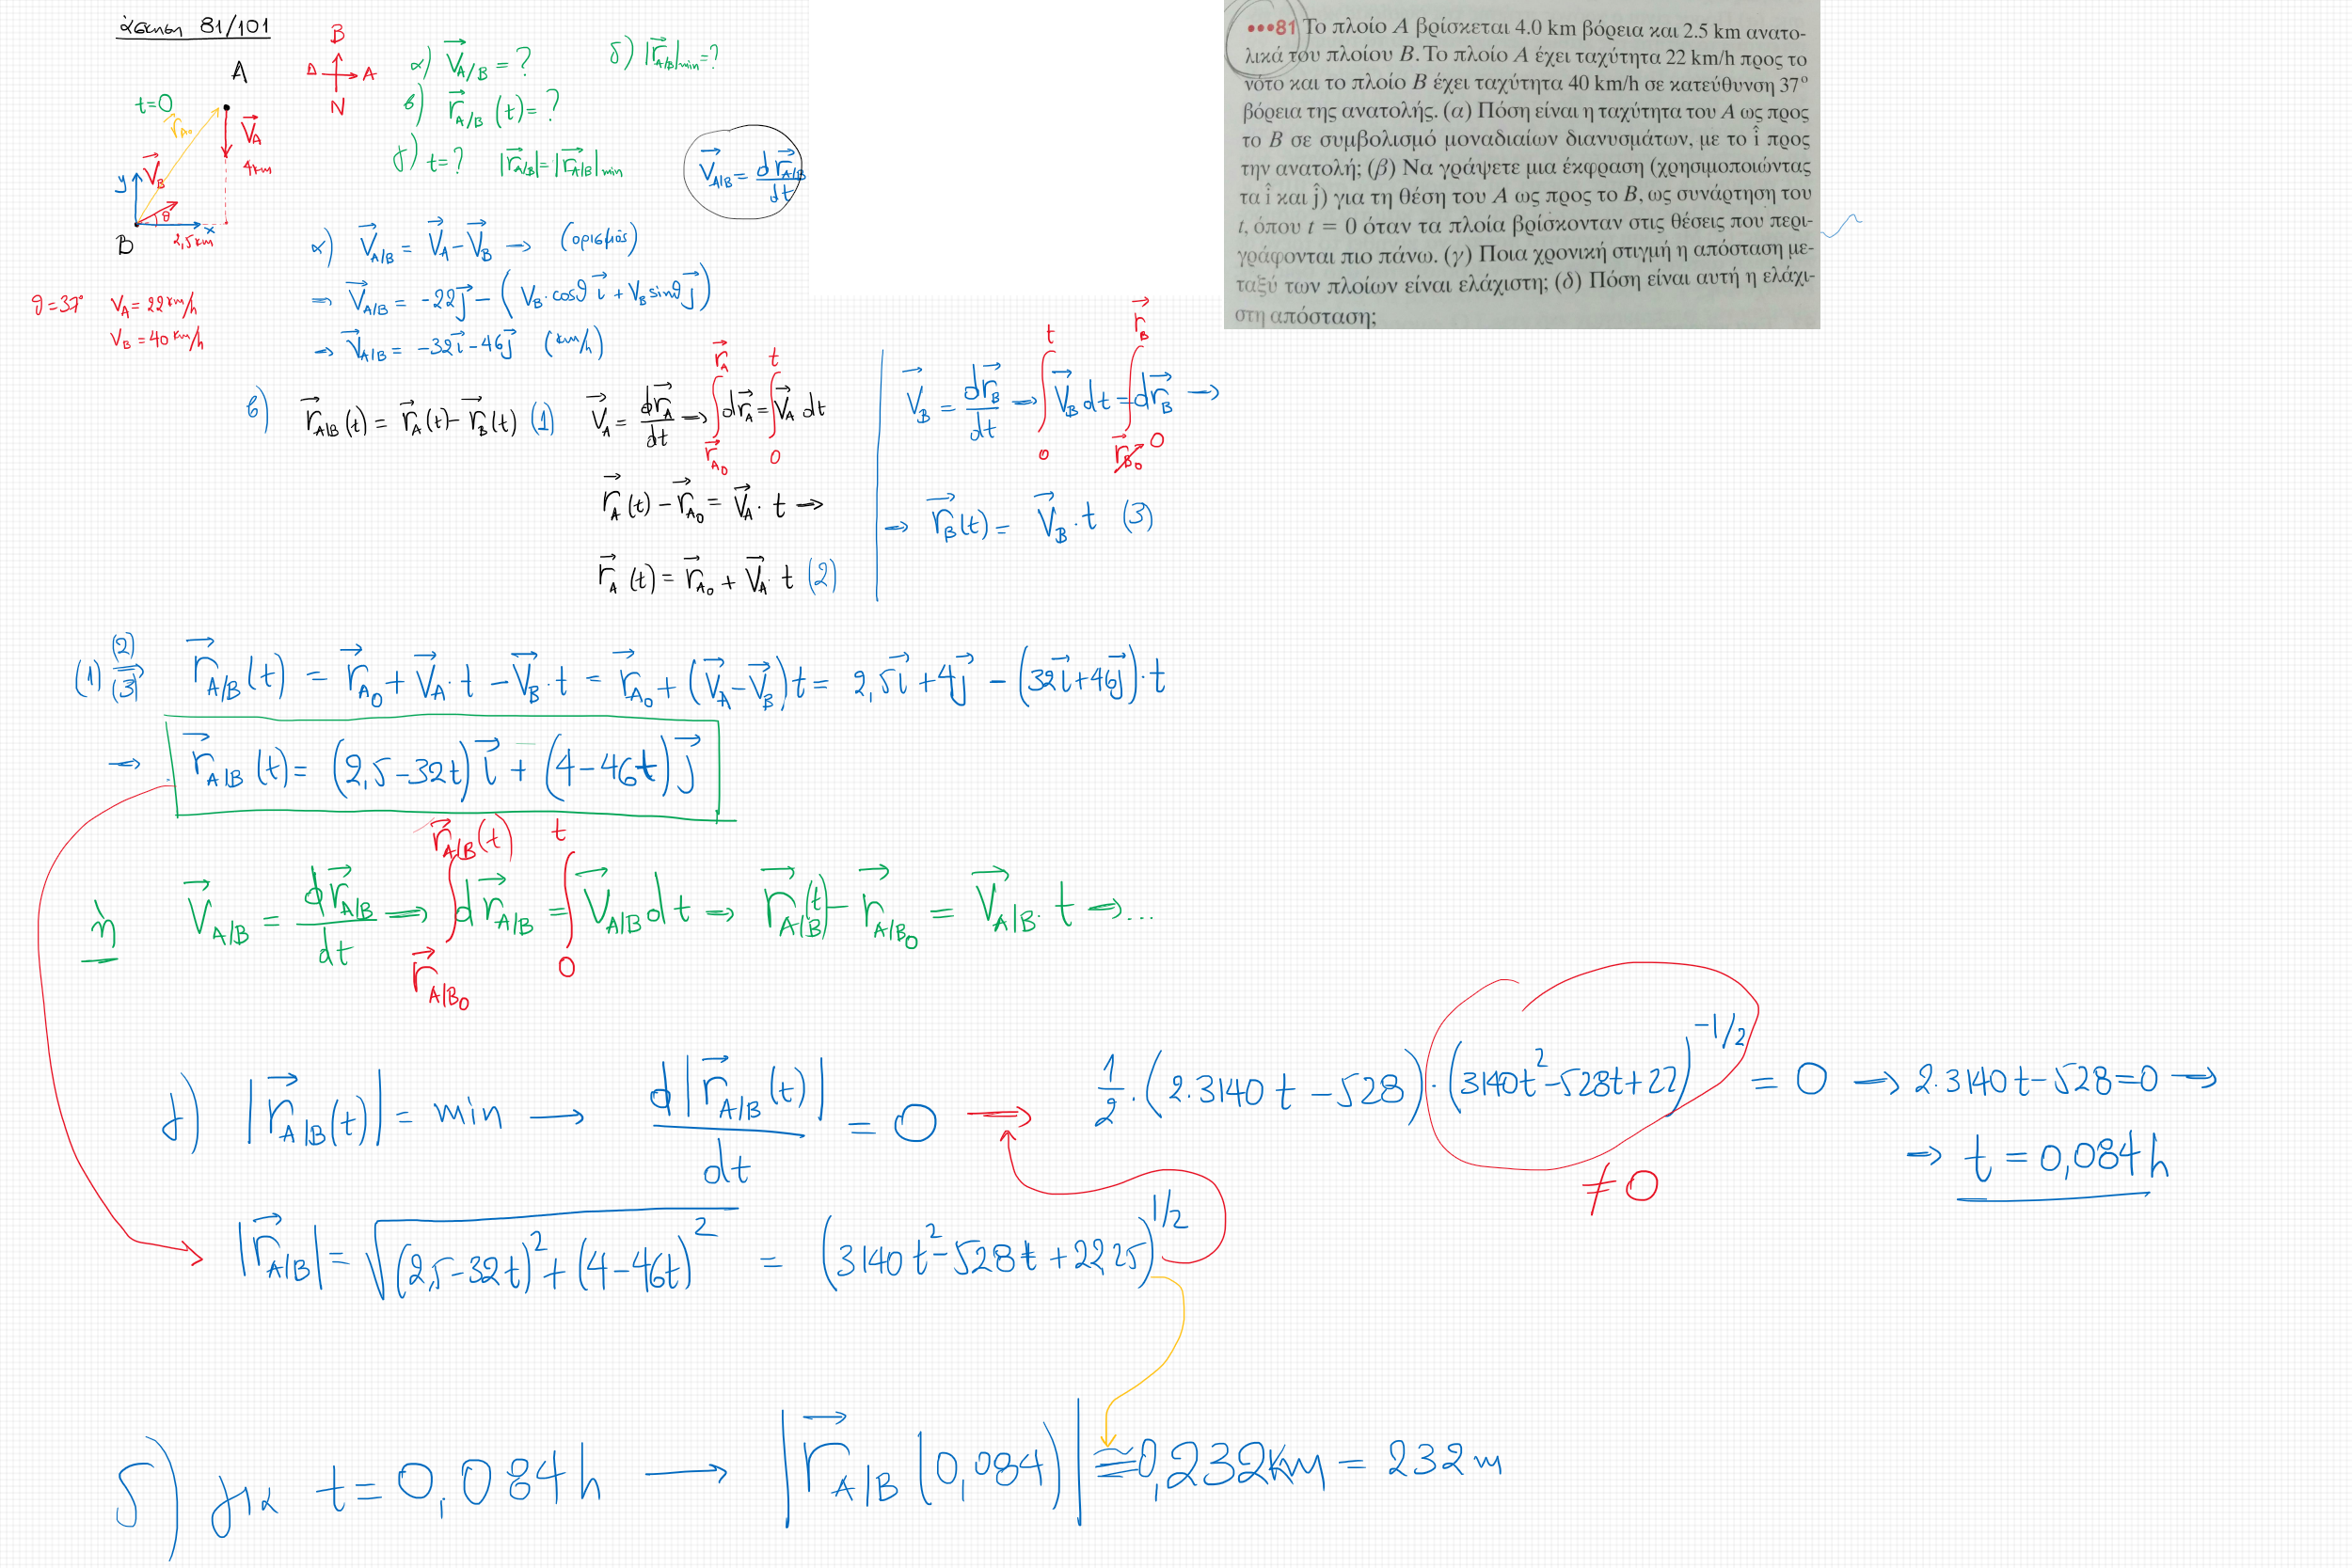 άσκηση 81/101
B
Δ A
N
A
t=0
r⃗_A₀
V⃗_A
4km
y
V⃗_B
θ
x
B
2,5km
θ=37° V_A = 22 km/h
V_B = 40 km/h
α) V⃗_A/B = ?
β) r⃗_A/B (t) = ?
γ) t=? |r⃗_A/B| = |r⃗_A/B|min
δ) |r⃗_A/B|min = ?
V⃗_A/B = dr⃗_A/B / dt
α) V⃗_A/B = V⃗_A - V⃗_B → (ορισμός)
⇒ V⃗_A/B = -22j⃗ - (V_B·cosθ i⃗ + V_B sinθ j⃗)
→ V⃗_A/B = -32i⃗ - 46j⃗ (km/h)
β) r⃗_A/B (t) = r⃗_A(t) - r⃗_B(t) (1) V⃗_A = dr⃗_A/dt → ∫_{r⃗_A₀}^{r⃗_A} dr⃗_A = ∫_0^t V⃗_A dt
r⃗_A (t) - r⃗_A₀ = V⃗_A · t →
r⃗_A (t) = r⃗_A₀ + V⃗_A · t (2)
V⃗_B = dr⃗_B/dt → ∫_0^t V⃗_B dt = ∫_{r⃗_B₀ 0}^{r⃗_B} dr⃗_B →
→ r⃗_B(t) = V⃗_B · t (3)
(1) (2)⇒(3) r⃗_A/B (t) = r⃗_A₀ + V⃗_A · t - V⃗_B · t = r⃗_A₀ + (V⃗_A - V⃗_B)t = 2,5i⃗ + 4j⃗ - (32i⃗ + 46j⃗)·t
→ r⃗_A/B (t) = (2,5-32t) i⃗ + (4-46t) j⃗
ή V⃗_A/B = dr⃗_A/B / dt → ∫_{r⃗_A/B₀}^{r⃗_A/B(t)} dr⃗_A/B = ∫_0^t V⃗_A/B dt → r⃗_A/B(t) - r⃗_A/B₀ = V⃗_A/B · t → ...
γ) |r⃗_A/B(t)| = min → d|r⃗_A/B(t)| / dt = 0 ⇒ 1/2 · (2·3140t - 528) · (3140t² - 528t + 22)^{-1/2} = 0 → 2·3140t - 528 = 0 →
≠0
→ t = 0,084h
|r⃗_A/B| = √((2,5-32t)² + (4-46t)²) = (3140t² - 528t + 22 25)^{1/2}
δ) για t = 0,084h → |r⃗_A/B (0,084)| ≅ 0,232km = 232m
•••81 Το πλοίο A βρίσκεται 4.0 km βόρεια και 2.5 km ανατο-
λικά του πλοίου B. Το πλοίο A έχει ταχύτητα 22 km/h προς το
νότο και το πλοίο B έχει ταχύτητα 40 km/h σε κατεύθυνση 37°
βόρεια της ανατολής. (α) Πόση είναι η ταχύτητα του A ως προς
το B σε συμβολισμό μοναδιαίων διανυσμάτων, με το î προς
την ανατολή; (β) Να γράψετε μια έκφραση (χρησιμοποιώντας
τα î και ĵ) για τη θέση του A ως προς το B, ως συνάρτηση του
t, όπου t = 0 όταν τα πλοία βρίσκονταν στις θέσεις που περι-
γράφονται πιο πάνω. (γ) Ποια χρονική στιγμή η απόσταση με-
ταξύ των πλοίων είναι ελάχιστη; (δ) Πόση είναι αυτή η ελάχι-
στη απόσταση;